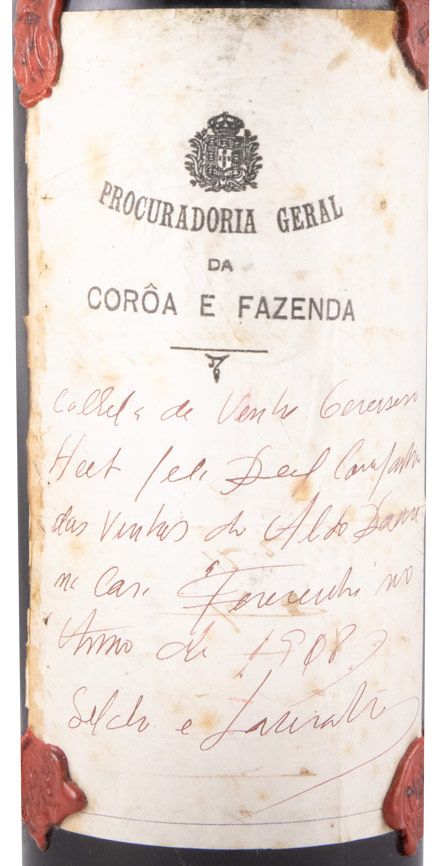 PROCURADORIA GERAL
DA
CORÔA E FAZENDA
de Vinho Generoso
Real
das Vinhas do Alto Douro
na Casa no
Anno de 1908
Selado e Lacrado